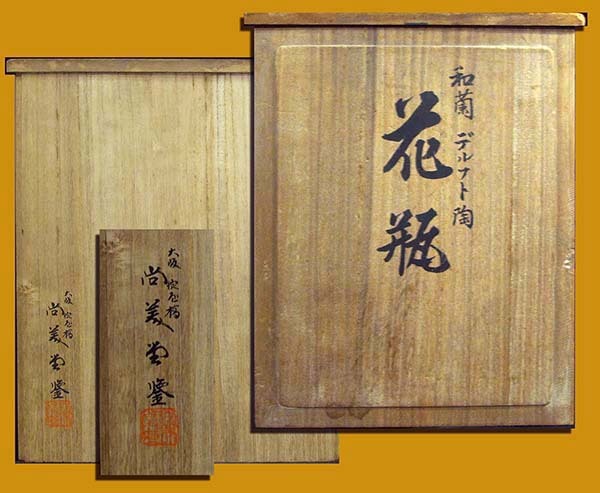 和蘭 デルフト陶
花瓶
大阪 淀屋橋
尚美堂鑒
大阪 淀屋橋
尚美堂鑒